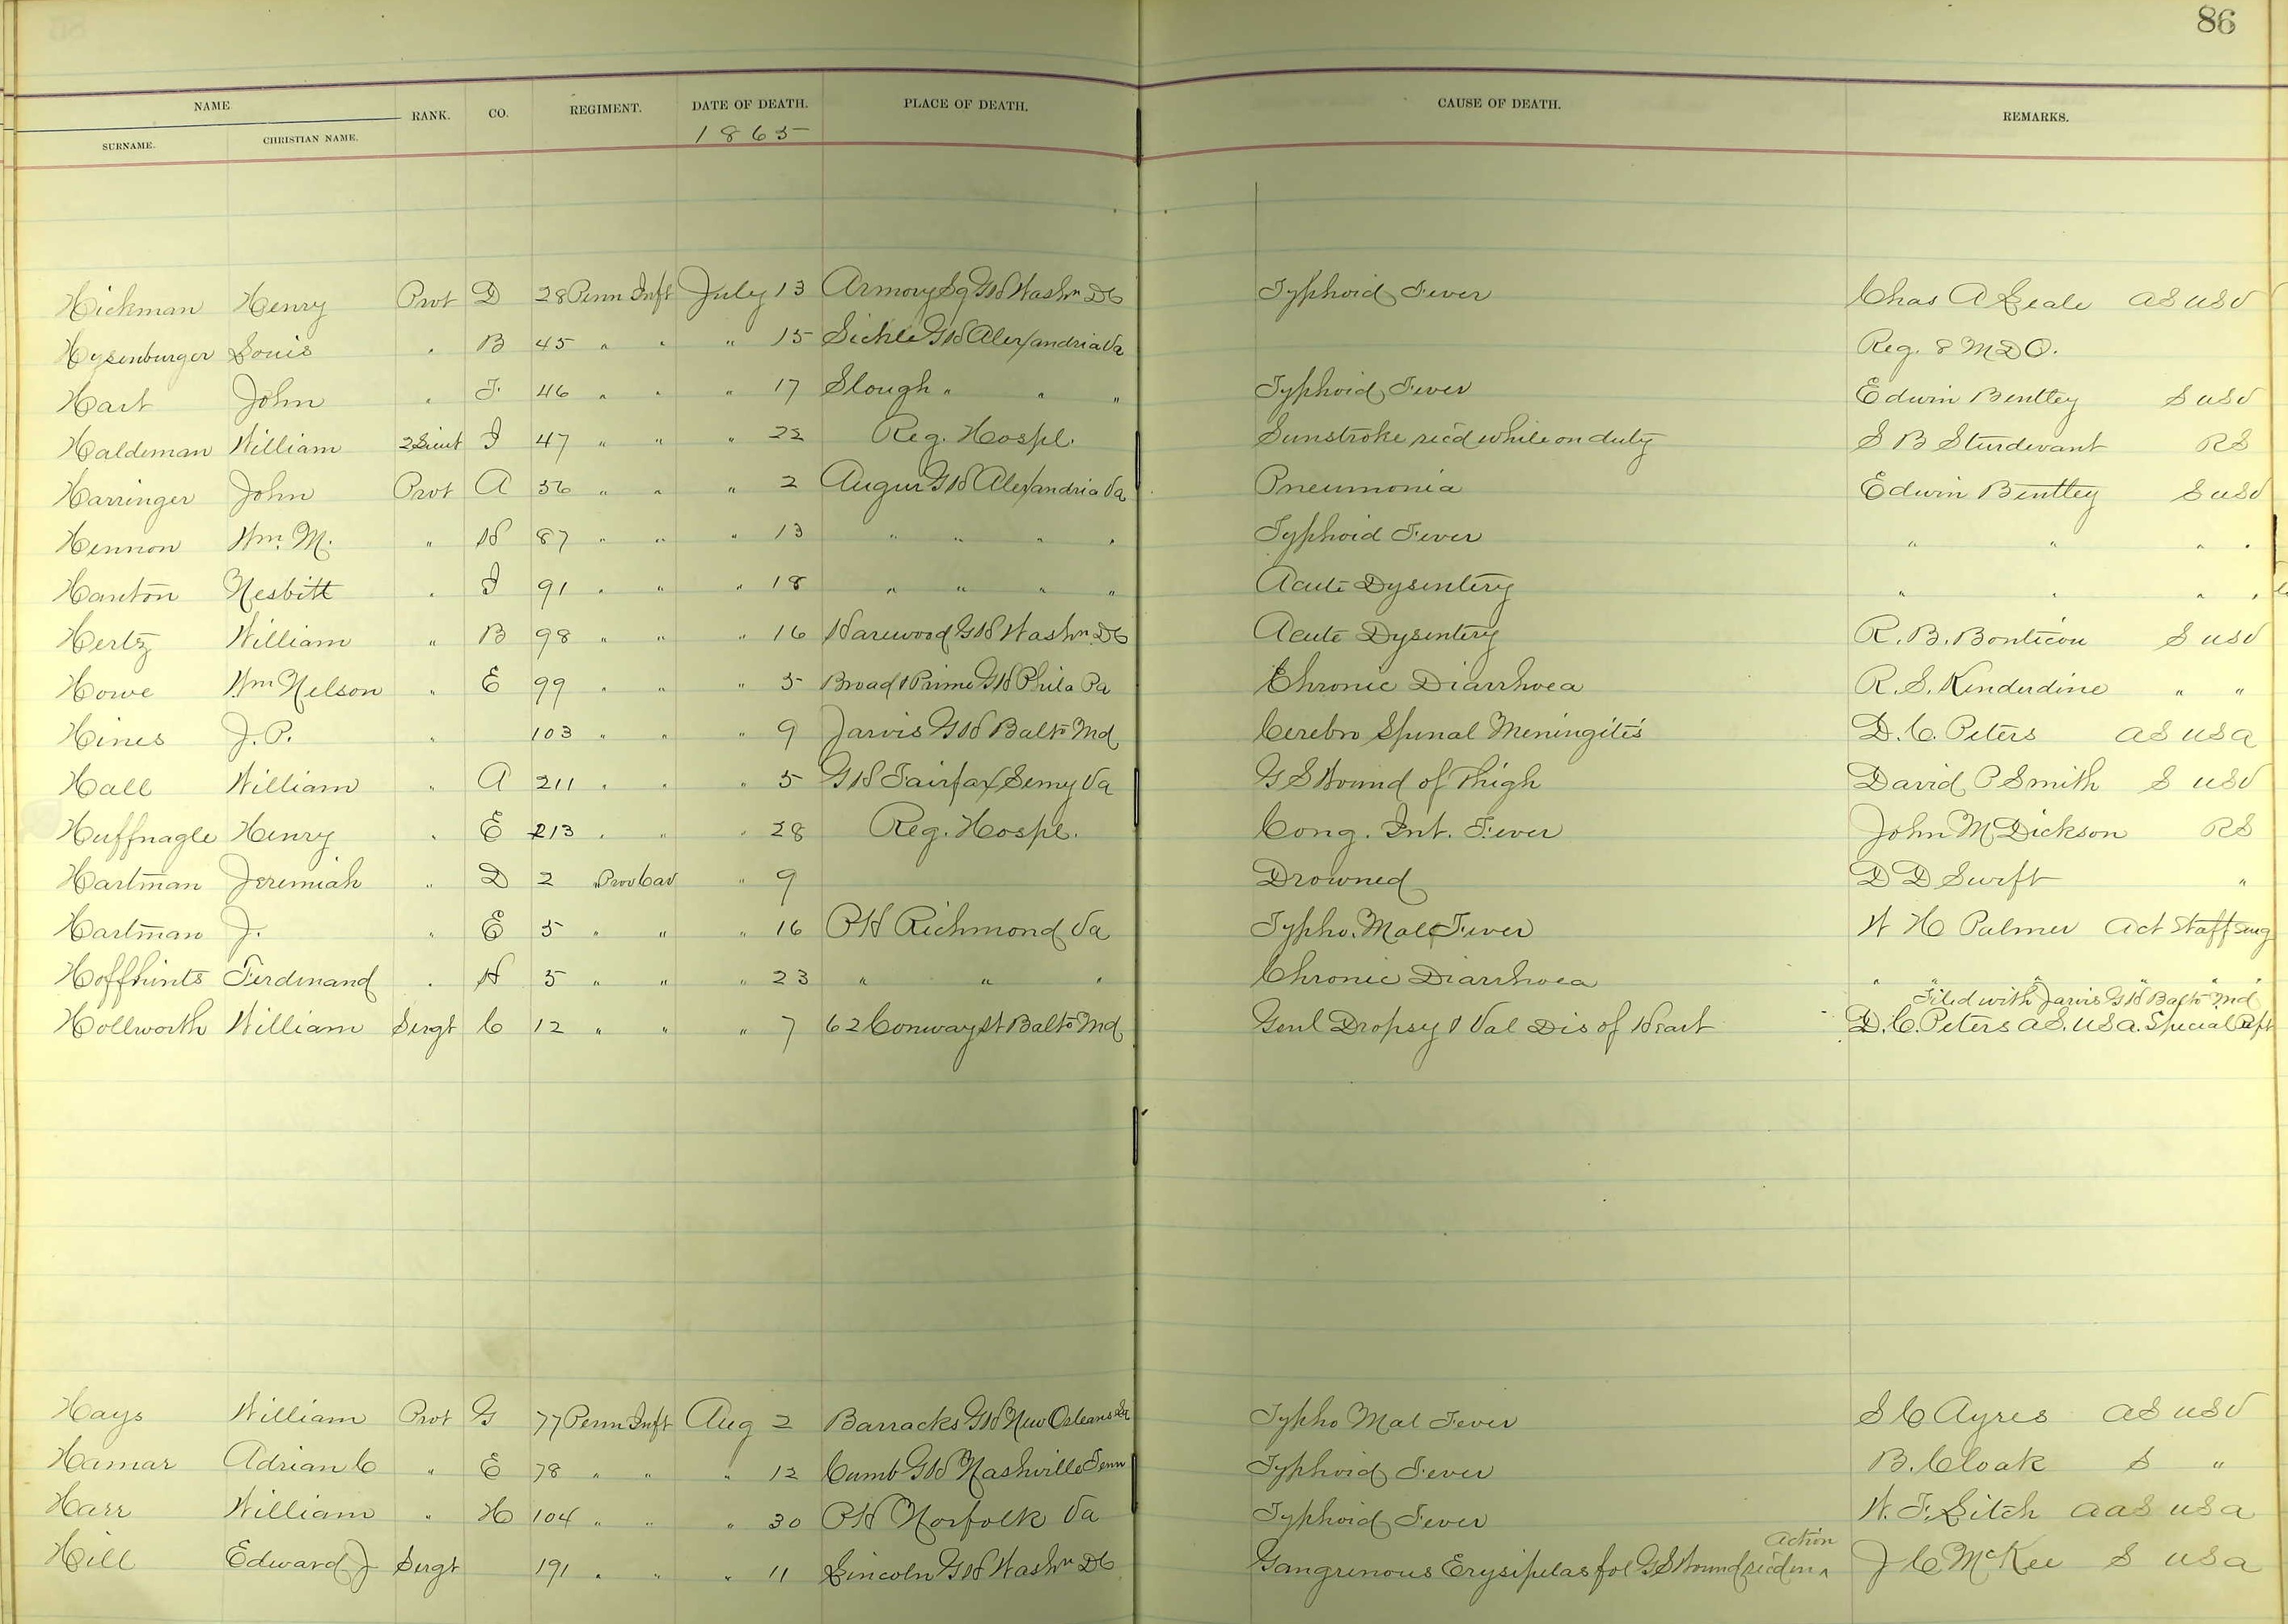 86
NAME RANK. CO. REGIMENT. DATE OF DEATH. PLACE OF DEATH. CAUSE OF DEATH. REMARKS.
SURNAME. CHRISTIAN NAME. 1865
Hickman Henry Prvt D 28 Penn Inft July 13 Armory Sq GH Washn DC Typhoid Fever Chas A Leale AS USV
Hysenburger Louis " B 45 " " " 15 Sickle GH Alexandria Va Reg. 8 MDO.
Hart John " F 46 " " " 17 Slough " " " Typhoid Fever Edwin Bentley S USV
Haldeman William 2 Lieut I 47 " " " 22 Reg. Hospl. Sunstroke rec'd while on duty S B Sturdevant RS
Harringer John Prvt A 56 " " " 2 Augur GH Alexandria Va Pneumonia Edwin Bentley S USV
Hennon Wm. M. " H 87 " " " 13 " " " " Typhoid Fever " " " "
Hanton Nesbitt " I 91 " " " 18 " " " " Acute Dysentery " " " "
Hertz William " B 98 " " " 16 Harewood GH Washn DC Acute Dysentery R. B. Bonticou S USV
Howe Wm Nelson " E 99 " " " 5 Broad & Prime GH Phila Pa Chronic Diarrhoea R. S. Kenderdine " "
Hines J. P. " 103 " " " 9 Jarvis GH Balto Md Cerebro Spinal Meningitis D. C. Peters AS USA
Hall William " A 211 " " " 5 GH Fairfax Semy Va G S Wound of Thigh David P Smith S USV
Huffnagle Henry " E 213 " " " 28 Reg. Hospl. Cong. Int. Fever John M Dickson RS
Hartman Jeremiah " D 2 " Prov Cav " 9 Drowned D D Swift "
Hartman J. " E 5 " " " 16 PH Richmond Va Typho. Mal Fever W H Palmer Act Staff Surg
Hoffhints Ferdinand " H 5 " " " 23 " " " Chronic Diarrhoea " " " " " "
Filed with Jarvis GH Balto Md
Hollworth William Sergt C 12 " " " 7 62 Conway St Balto Md Genl Dropsy & Val Dis of Heart D. C. Peters AS. USA. Special Rept
Hays William Prvt G 77 Penn Inft Aug 2 Barracks GH New Orleans La Typho Mal Fever S C Ayres AS USV
Hamar Adrian C " E 78 " " " 12 Cumb GH Nashville Tenn Typhoid Fever B. Cloak S "
Harr William " H 104 " " " 30 PH Norfolk Va Typhoid Fever W. F. Litch AAS USA
Action
Hill Edward J Sergt 191 " " " 11 Lincoln GH Washn DC Gangrenous Erysipelas fol G S Wound rec'd in ^ J C McKee S USA